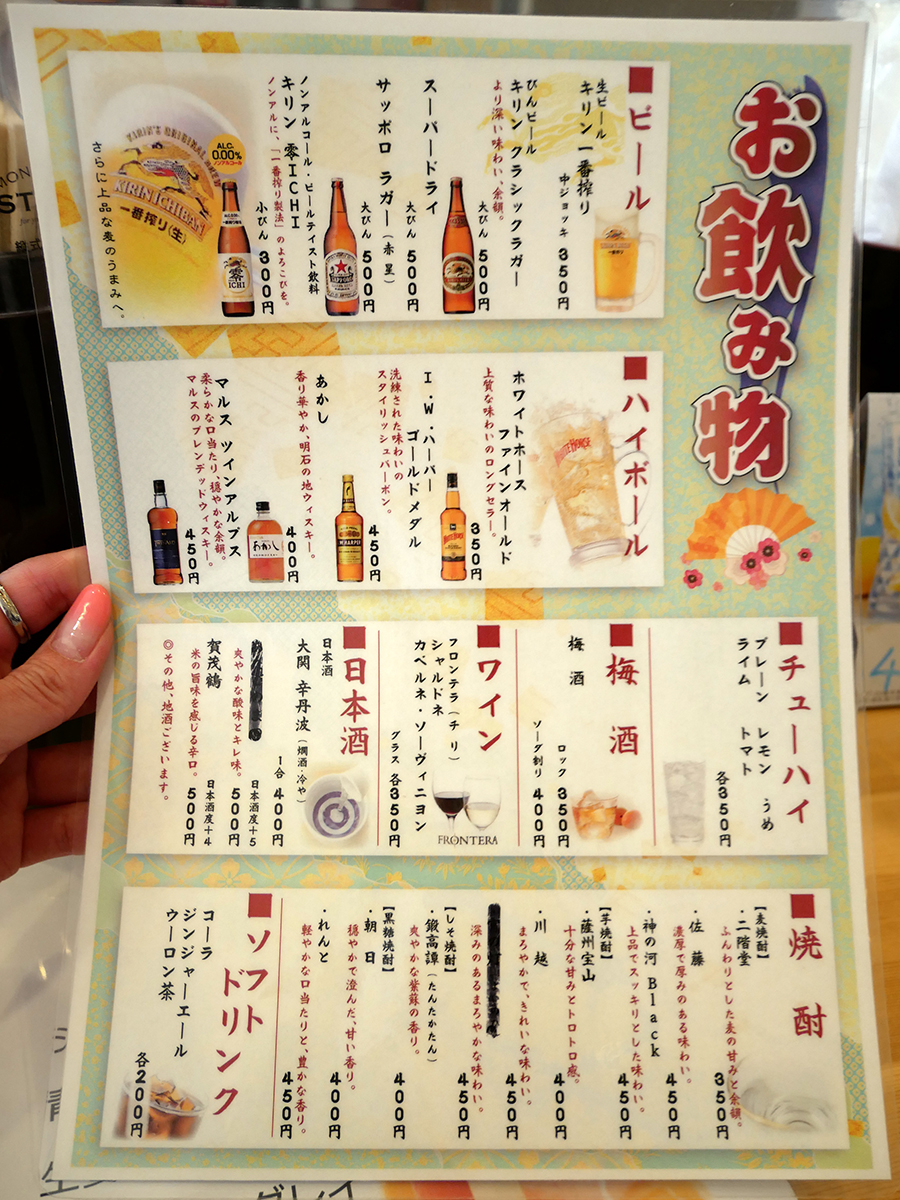 お飲み物
■ビール
生ビール
キリン 一番搾り
中ジョッキ 350円
びんビール
キリン クラシックラガー
より深い味わい、余韻。
大びん 500円
スーパードライ
大びん 500円
サッポロ ラガー(赤星)
大びん 500円
ノンアルコール・ビールテイスト飲料
キリン 零ICHI
ノンアルに、「一番搾り製法」のよろこびを。
小びん 300円
ALC.
0.00%
ノンアルコール
零
ICHI
KIRIN ICHIBAN
一番搾り(生)
さらに上品な麦のうまみへ。
■ハイボール
ホワイトホース
ファインオールド
上質な味わいのロングセラー。
350円
I.W.ハーパー
ゴールドメダル
洗練された味わいの
スタイリッシュバーボン。
450円
あかし
香り華やか、明石の地ウィスキー。
400円
マルス ツインアルプス
柔らかな口当たり、穏やかな余韻。
マルスのブレンデッドウィスキー。
450円
■チューハイ
プレーン レモン うめ
ライム トマト
各350円
■梅酒
梅酒
ロック 350円
ソーダ割り 400円
■ワイン
フロンテラ(チリ)
シャルドネ
カベルネ・ソーヴィニヨン
グラス 各350円
FRONTERA
■日本酒
日本酒
大関 辛丹波(燗酒・冷や)
1合 400円
爽やかな酸味とキレ味。
日本酒度+5
500円
賀茂鶴
米の旨味を感じる辛口。
日本酒度+4
500円
◎その他、地酒ございます。
■焼酎
【麦焼酎】
・二階堂
ふんわりとした麦の甘みと余韻。
350円
・佐藤
濃厚で厚みのある味わい。
450円
・神の河 Black
上品でスッキリとした味わい。
450円
【芋焼酎】
・薩州宝山
十分な甘みとトロトロ感。
400円
・川越
まろやかで、きれいな味わい。
450円
深みのあるまろやかな味わい。
450円
【しそ焼酎】
・鍛高譚(たんたかたん)
爽やかな紫蘇の香り。
400円
【黒糖焼酎】
・朝日
穏やかで澄んだ、甘い香り。
400円
・れんと
軽やかな口当たりと、豊かな香り。
450円
■ソフトドリンク
コーラ
ジンジャーエール
ウーロン茶
各200円